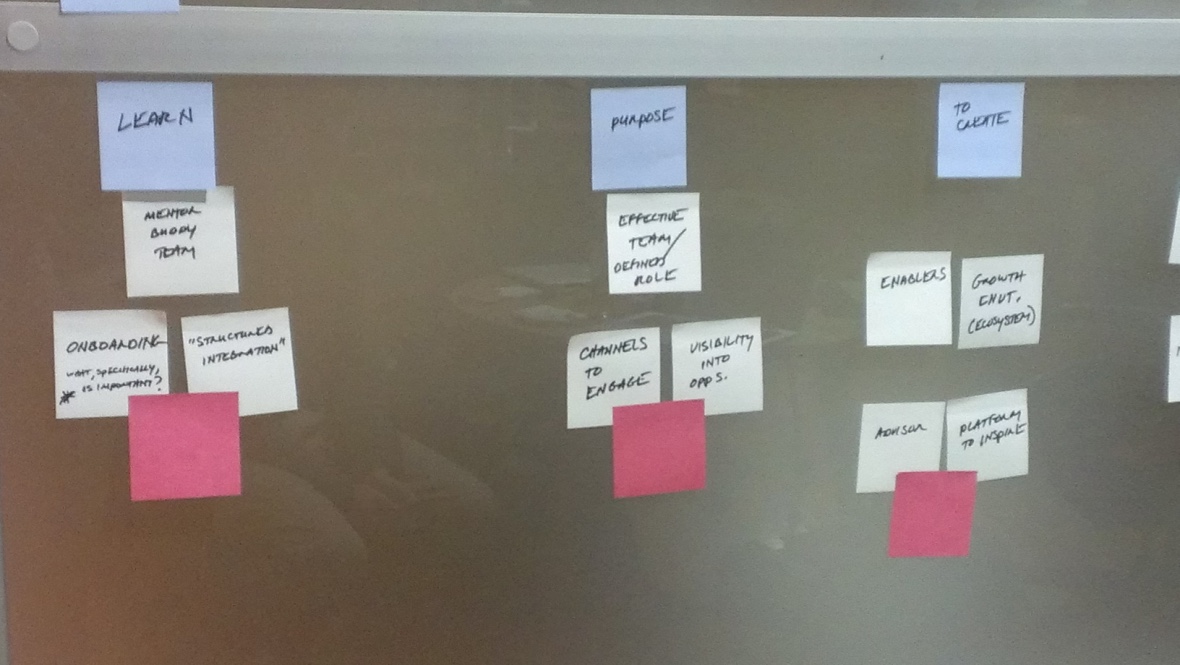 LEARN
MENTOR
BUDDY
TEAM
ONBOARDING
WHAT, SPECIFICALLY,
* IS IMPORTANT?
"STRUCTURED
INTEGRATION"
PURPOSE
EFFECTIVE
TEAM/
DEFINED
ROLE
CHANNELS
TO
ENGAGE
VISIBILITY
INTO
OPPS.
TO
CREATE
ENABLERS
GROWTH
ENVT.
(ECOSYSTEM)
ADVISOR
PLATFORM
TO INSPIRE